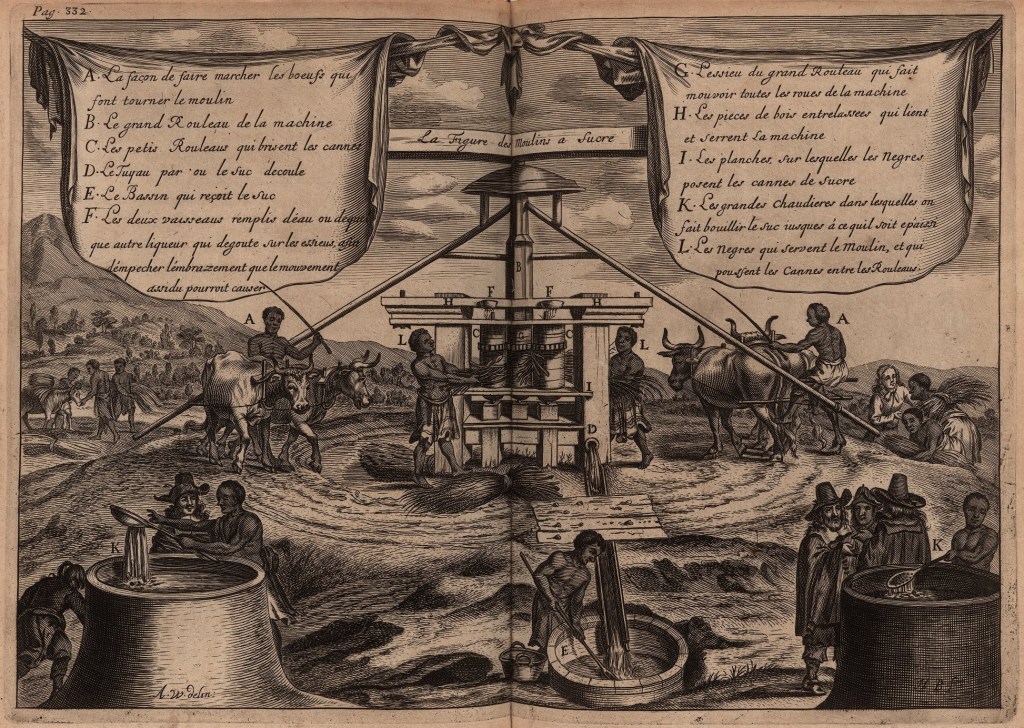 Pag. 332.
A. La façon de faire marcher les boeufs qui
font tourner le moulin
B. Le grand Rouleau de la machine
C. Les petis Rouleaus qui brisent les cannes
D. Le Tuyau par ou le suc decoule
E. Le Bassin qui reçoit le suc
F. Les deux vaisseaus remplis d'eau ou
que autre liqueur qui degoute sur les essieus,
d'émpecher l'embrazement que le mouvement
assidu pourroit causer
La Figure des Moulins a Sucre
G. Lessieu du grand Rouleau qui fait
mouvoir toutes les roues de la machine
H. Les pieces de bois entrelassees qui lient
et serrent la machine
I. Les planches, sur lesquelles les Negres
posent les cannes de sucre
K. Les grandes chaudieres dans lesquelles on
fait bouillir le suc iusques à ce quil soit epaissi
L. Les Negres qui servent le Moulin, et qui
poussent les Cannes entre les Rouleaus.
B
H F F H
A L C G C L A
I
D
K K
E
A. W. delin: